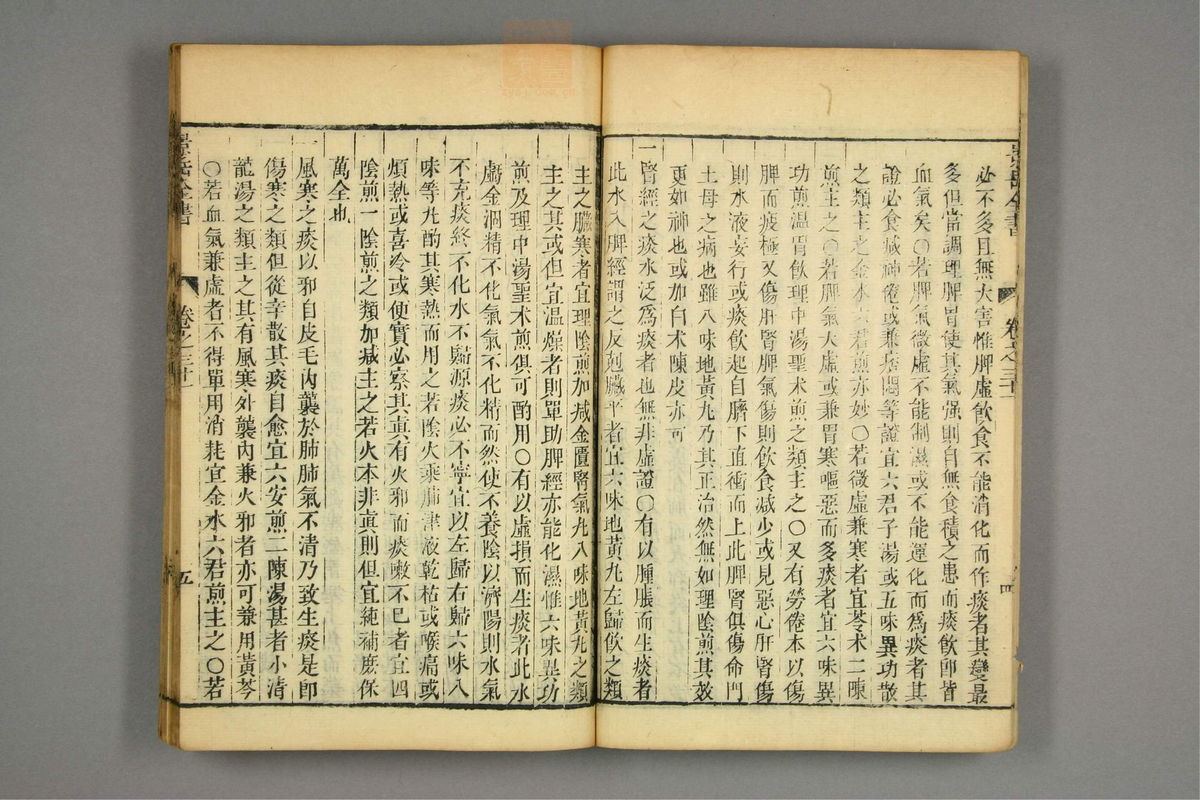 景岳全書 卷之三十一 四
必不多且無大害惟脾虛飲食不能消化而作痰者其變最
多但當調理脾胃使其氣强則自無食積之患而痰飲卽皆
血氣矣○若脾氣微虛不能制濕或不能運化而爲痰者其
證必食減神倦或兼痞悶等證宜六君子湯或五味異功散
之類主之金水六君煎亦妙○若微虛兼寒者宜苓朮二陳
煎主之○若脾氣大虛或兼胃寒嘔惡而多痰者宜六味異
功煎温胃飲理中湯聖朮煎之類主之○又有勞倦本以傷
脾而疲極又傷肝腎脾氣傷則飲食減少或見惡心肝腎傷
則水液妄行或痰飲起自臍下直衝而上此脾腎俱傷命門
土母之病也雖八味地黃丸乃其正治然無如理陰煎其效
更如神也或加白朮陳皮亦可
一腎經之痰水泛爲痰者也無非虛證○有以腫脹而生痰者
此水入脾經謂之反剋臟平者宜六味地黃丸左歸飲之類
主之臟寒者宜理陰煎加減金匱腎氣丸八味地黃丸之類
主之其或但宜温燥者則單助脾經亦能化濕惟六味異功
煎及理中湯聖朮煎俱可酌用○有以虛損而生痰者此水
虧金涸精不化氣氣不化精而然使不養陰以濟陽則水氣
不充痰終不化水不歸源痰必不寧宜以左歸右歸六味八
味等丸酌其寒熱而用之若陰火乘肺津液乾枯或喉痛或
煩熱或喜冷或便實必察其眞有火邪而痰嗽不已者宜四
陰煎一陰煎之類加減主之若火本非眞則但宜純補庶保
萬全也
一風寒之痰以邪自皮毛內襲於肺肺氣不清乃致生痰是卽
傷寒之類但從辛散其痰自愈宜六安煎二陳湯甚者小青
龍湯之類主之其有風寒外襲內兼火邪者亦可兼用黃芩
○若血氣兼虛者不得單用消耗宜金水六君煎主之○若
景岳全書 卷之三十一 五